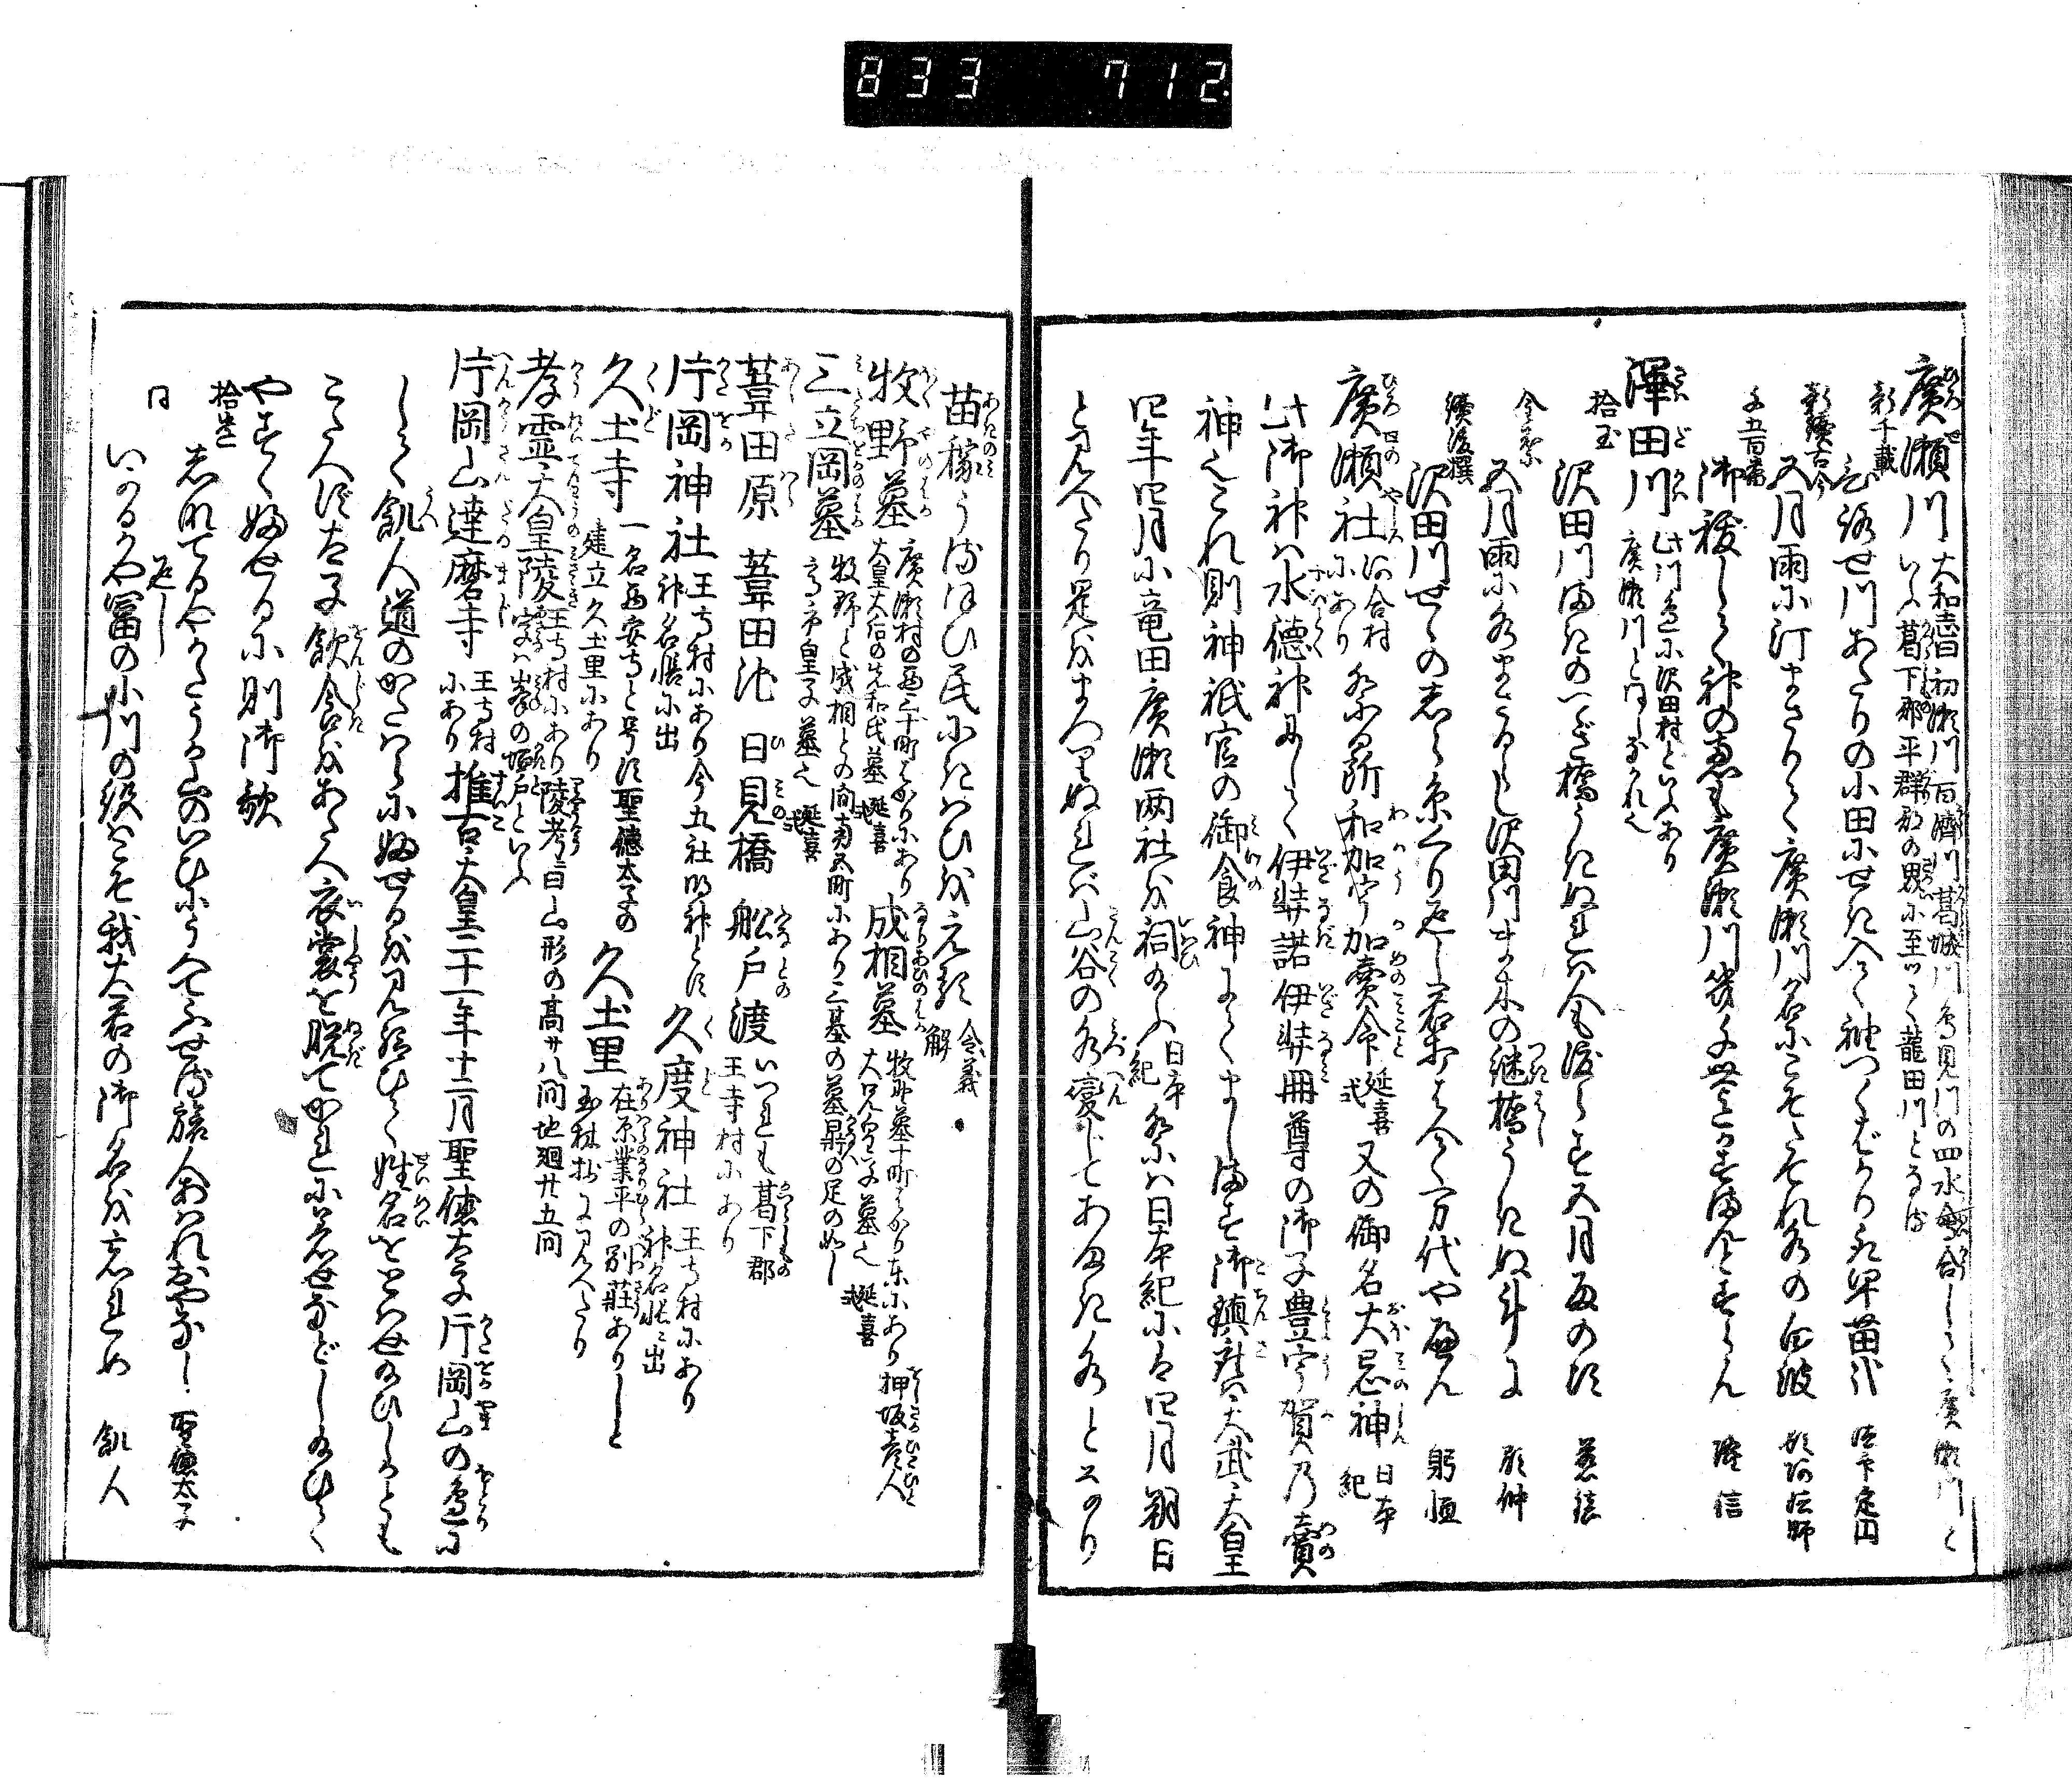 833 712
廣瀬川 大和志曰初瀬川百濟川葛城川曽我川の四水會合して廣瀬川と
いふ葛下郡平群郡の界に至つて龍田川となる
新千載
ひろせ川あたりの小田にせき入て袖つくばかりとる早苗哉 法印定円
新續古今
五月雨に汀まさりて廣瀬川名にこそたてれ水の白波 頓阿法師
千五百番
御祓して神の恵も廣瀬川幾千世 信
渾田川 此川邊に沢田村といふあり
廣瀬川と同じながれ也
拾玉
沢田川まきのつぎ橋うきぬれば今も渡らず五月雨の比 慈鎮
金葉
五月雨に水まさるらし沢田川まきの継橋うきぬ斗に 顕仲
續後撰
沢田川せゝのしら糸くり返し君うちはへて万代やへん 躬恒
廣瀬社 河合村にあり 祭る所和加宇加賣命 延喜式 又の御名大忌神 日本紀
此御神は水徳神にして伊弉諾伊弉冊尊の御子豊宇賀乃賣
神也これ則神祇官の御食神にてまします御鎮座は天武天皇
四年四月に竜田廣瀬両社を祠給ふ 日本紀 祭は日本紀にも四月朔日
と見へたり是をまつりぬれば山谷の水変じてあまき水となり
苗稼うるほひ民にぎはひを元る 令義解
牧野墓 廣瀬村の西三十町ばかりにあり
太皇大后の先和氏墓 延喜式
成相墓 牧野墓十町ばかり東にあり押坂彦人
大兄皇子墓也 延喜式
三立岡墓 牧野と成相との間南五町にあり三墓の墓鼎の足の如し
高市皇子墓也 延喜式
葦田原 葦田池 日見橋 舩戸渡 いづれも葛下郡
王寺村にあり
片岡神社 王寺村にあり今五社明神とす
神名帳に出
久度神社 王寺村にあり
神名帳に出
久土寺 一名西安寺と号す聖徳太子の
建立久土里にあり
久土里 在原業平の別荘ありしと
玉林抄に見へたり
孝霊天皇陵 王寺村にあり陵考曰山形の高サ八間地廻廿五間
字は峯の垣戸といふ
片岡山達磨寺 王寺村にあり 推古天皇二十一年十二月聖徳太子片岡山の邊に
して飢人道のかたはらに臥せるを見給ひて姓名をとはせ給ひしかども
こたへず太子飲食をあたへ衣裳を脱てかれに着せなどし給ひて
やすく臥せるに則御歌
拾遺
しなてるやかたをか山のいひにうへてふせる旅人あはれおやなし 聖徳太子
同 返し
いかるがや冨の小川の絶ばこそ我大君の御名を忘れめ 飢人